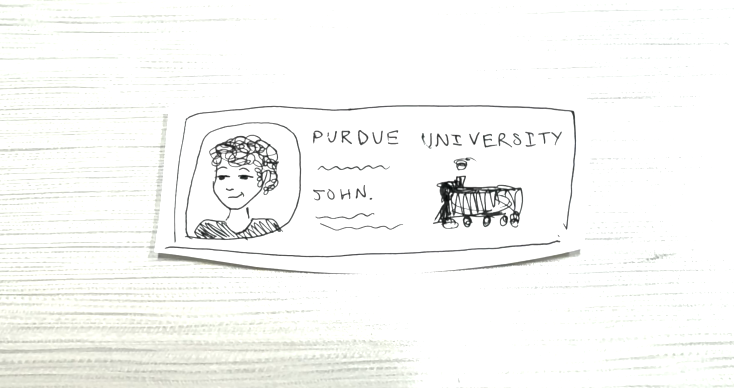 PURDUE UNIVERSITY
JOHN.